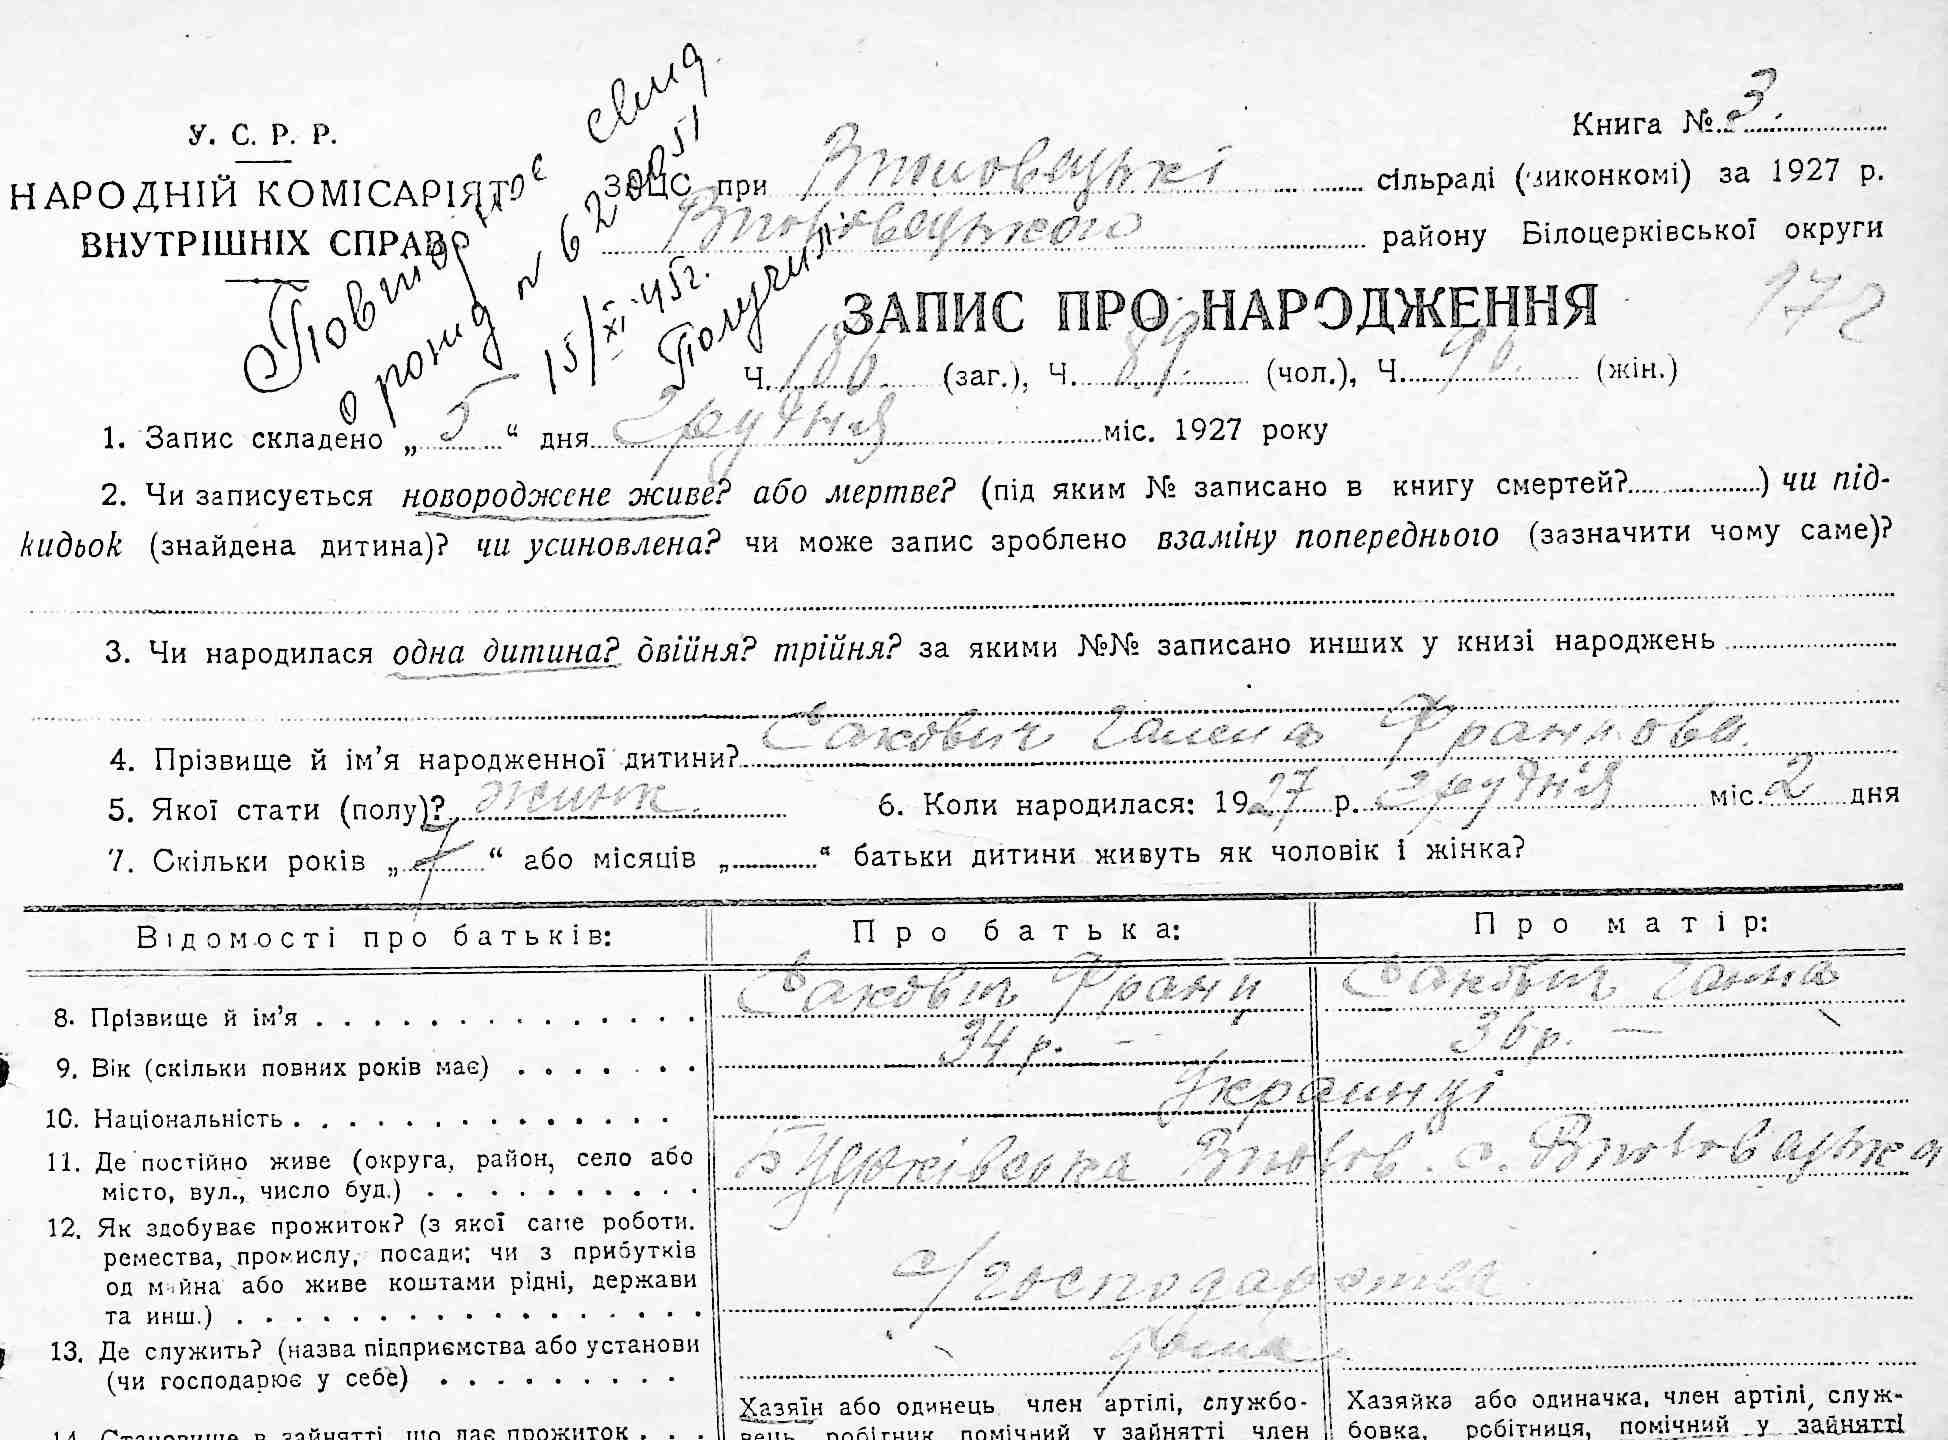 Книга № 3.
У. С. Р. Р.
НАРОДНІЙ КОМІСАРІЯТ
ВНУТРІШНІХ СПРАВ
Повторное свид.
о рожд № 620051
15/XI-45г.
Получил
ЗАЦС при сільраді (виконкомі) за 1927 р.
району Білоцерківської округи
172
ЗАПИС ПРО НАРОДЖЕННЯ
Ч. 186 (заг.), Ч. 89. (чол.), Ч. (жін.)
1. Запис складено „ 5 “ дня грудня міс. 1927 року
2. Чи записується новороджене живе? або мертве? (під яким № записано в книгу смертей?) чи під-
кидьок (знайдена дитина)? чи усиновлена? чи може запис зроблено взаміну попереднього (зазначити чому саме)?
3. Чи народилася одна дитина? двійня? трійня? за якими №№ записано инших у книзі народжень
4. Прізвище й ім’я народженної дитини? Сакович Галена Францова.
5. Якої стати (полу)? жинк. 6. Коли народилася: 1927 р. грудня міс. 2 дня
7. Скільки років „ 7 “ або місяців „ “ батьки дитини живуть як чоловік і жінка?
Відомості про батьків: Про батька: Про матір:
8. Прізвище й ім’я Сакович Франц Сакович Ганна
9. Вік (скільки повних років має) 34 р. – 36 р. –
10. Національність Украинці
11. Де постійно живе (округа, район, село або
місто, вул., число буд.) с.
12. Як здобуває прожиток? (з якої саме роботи,
ремества, промислу, посади; чи з прибутків
од майна або живе коштами рідні, держави
та инш.) с/господарства
13. Де служить? (назва підприємства або установи
(чи господарює у себе) дома
Хазяїн або одинець член артілі, службо- Хазяйка або одиначка, член артілі, служ-
14. Становище в зайнятті, що дає прожиток вець, робітник, помічний у зайнятті член бовка, робітниця, помічний у зайнятті